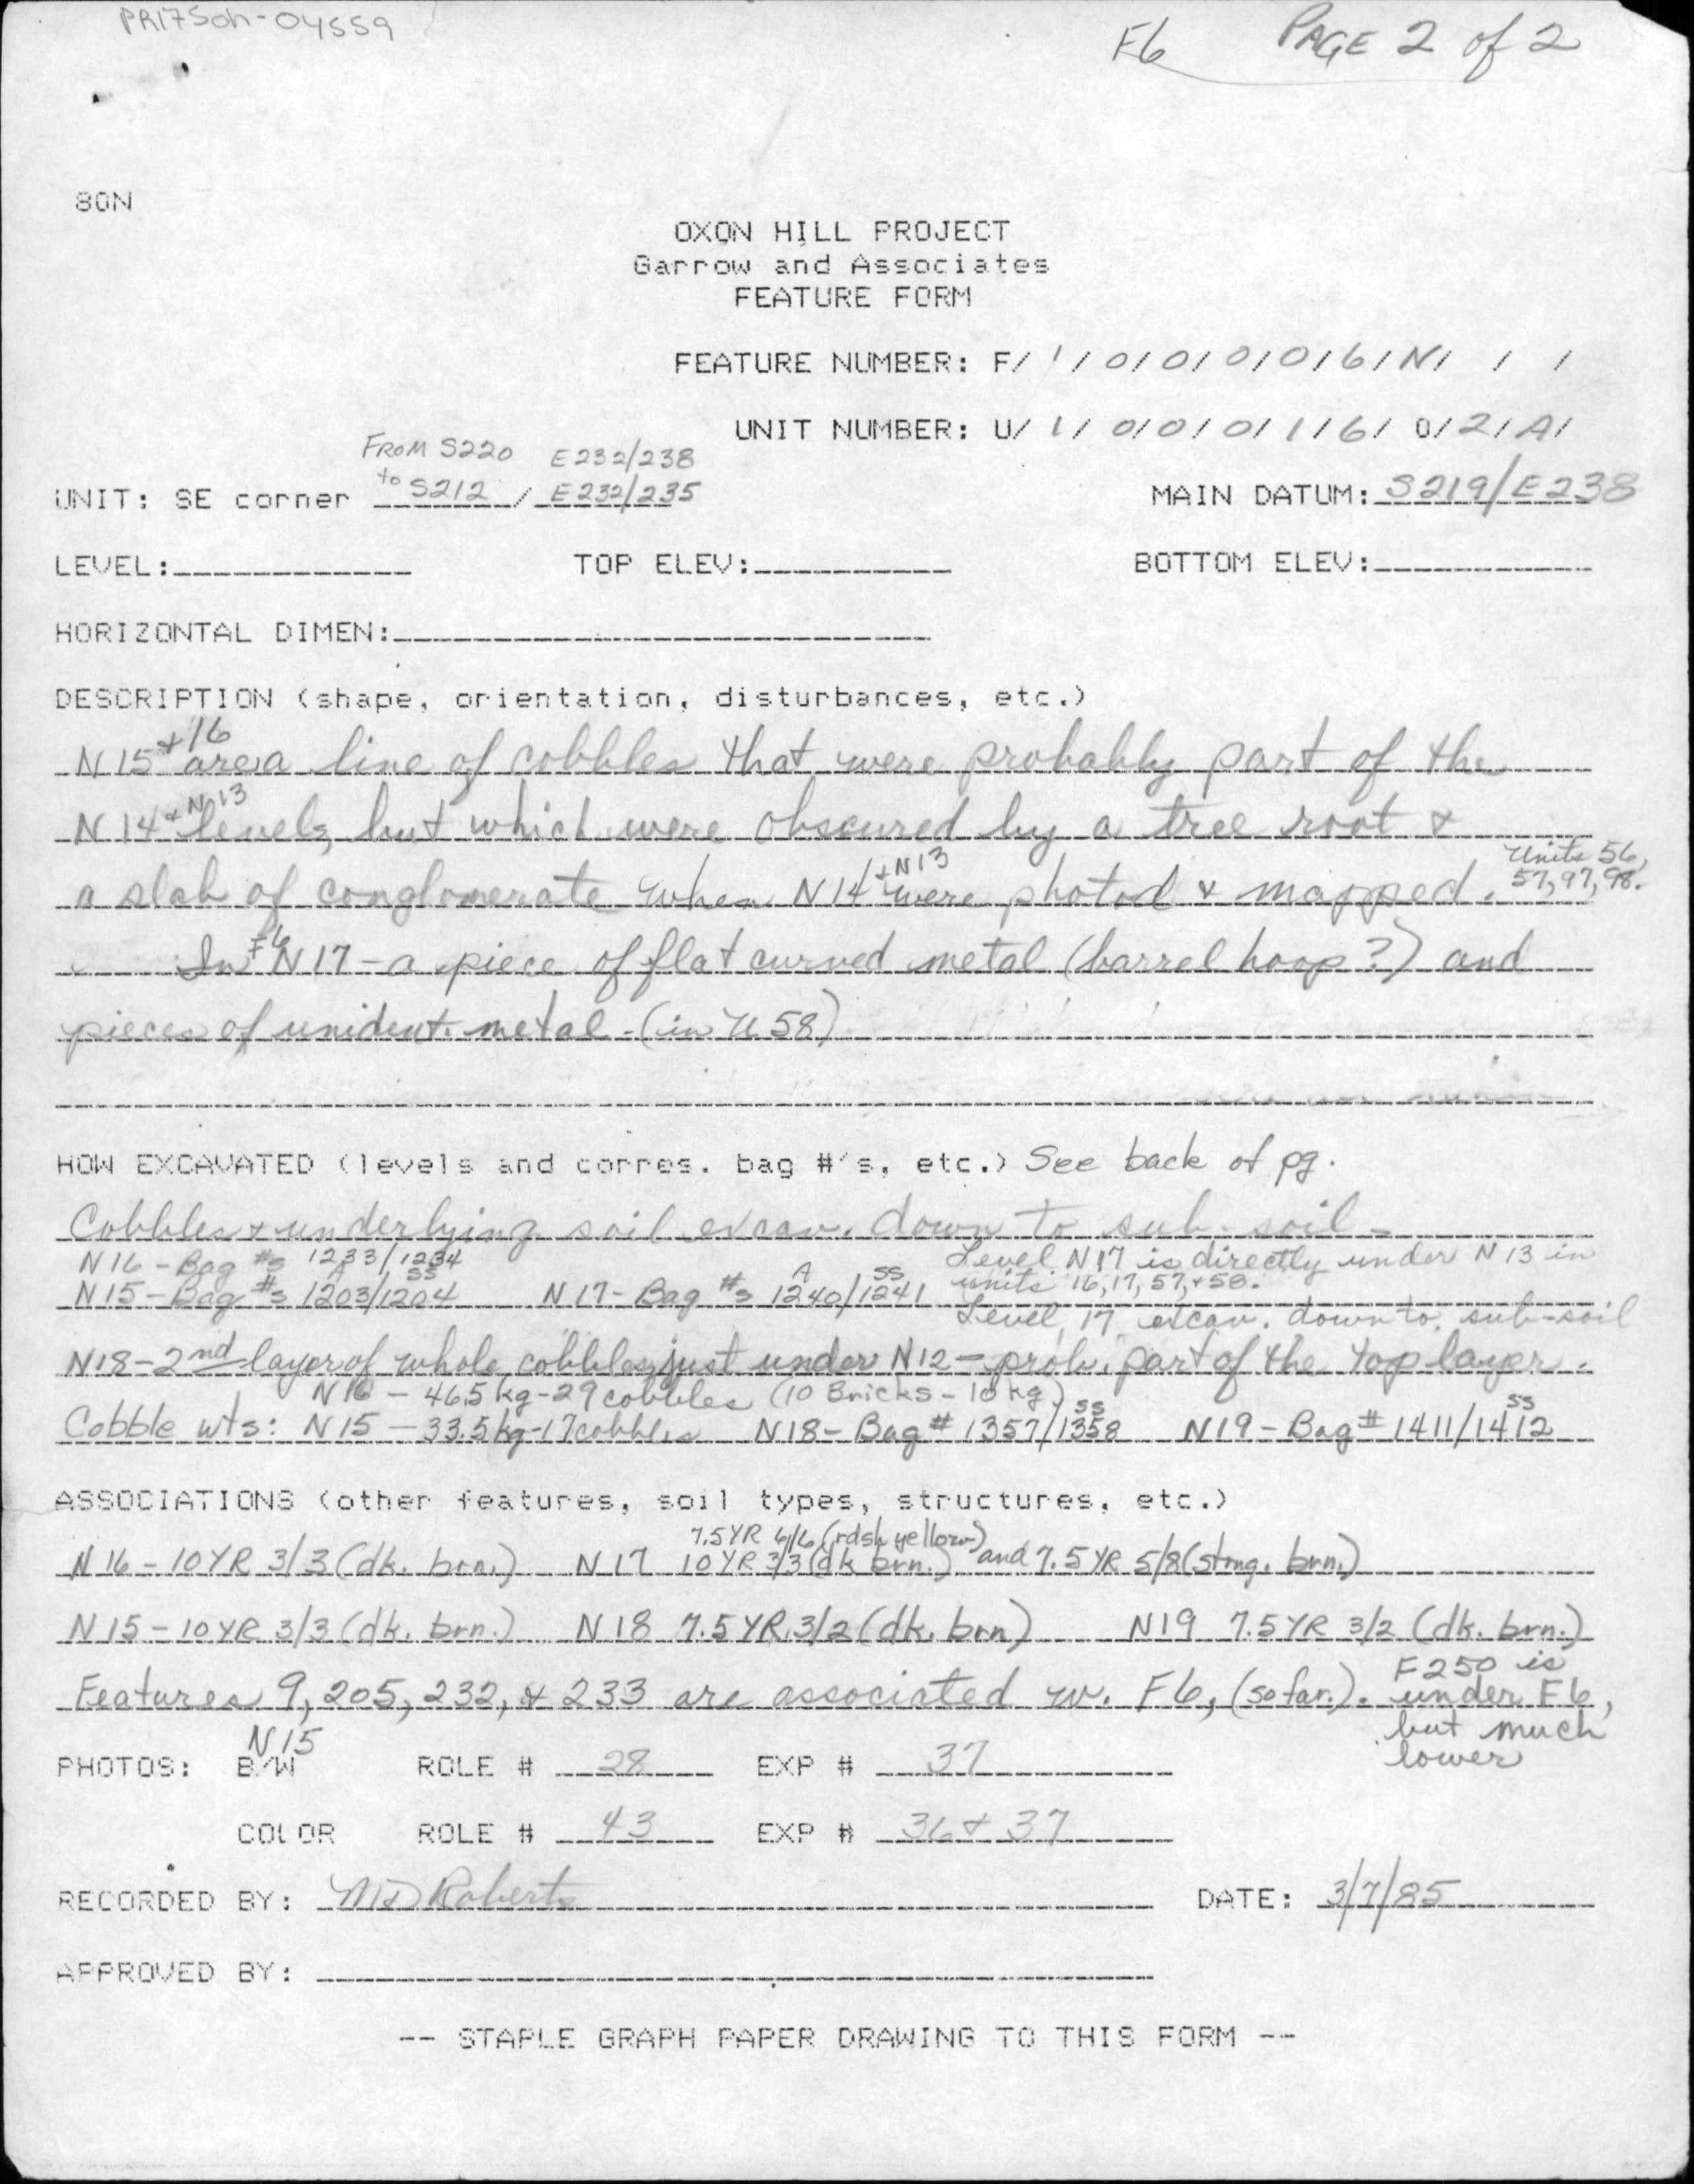 PR175oh-04559
F6 PAGE 2 of 2
80N
OXON HILL PROJECT
Garrow and Associates
FEATURE FORM
FEATURE NUMBER: F/ 1/ 0/0/0/0/6/N/ / /
UNIT NUMBER: U/ 1/ 0/0/0/1/6/ 0/2/A/
FROM S220 E232/238
UNIT: SE corner to S212 / E232/235 MAIN DATUM: S219/E238
LEVEL: TOP ELEV: BOTTOM ELEV:
HORIZONTAL DIMEN:
DESCRIPTION (shape, orientation, disturbances, etc.)
N15 + 16 are a line of cobbles that were probably part of the
N14 + N13 levels, but which were obscured by a tree root &
a slab of conglomerate when N14 + N13 were photod & mapped. Units 56,
57, 97, 98.
In F6 N17 - a piece of flat curved metal (barrel hoop?) and
pieces of unident. metal - (in U 58)
HOW EXCAVATED (levels and corres. bag #'s, etc.) See back of pg.
Cobbles & underlying soil excav. down to sub-soil -
N16 - Bag #s 1233/1234 Level N17 is directly under N13 in
A SS A SS units 16, 17, 57, + 58.
N15 - Bag #s 1203/1204 N17 - Bag #s 1240/1241
Level 17 excav. down to sub-soil
N18 - 2nd layer of whole cobbles, just under N12 - prob. part of the top layer.
N16 - 46.5 kg - 29 cobbles (10 Bricks - 10 kg) SS SS
Cobble wts: N15 - 33.5 kg - 17 cobbles N18 - Bag # 1357/1358 N19 - Bag # 1411/1412
ASSOCIATIONS (other features, soil types, structures, etc.)
7.5YR 6/6 (rdsh yellow)
N16 - 10YR 3/3 (dk. brn.) N17 10YR 3/3 (dk brn.) and 7.5 YR 5/8 (strng. brn.)
N15 - 10YR 3/3 (dk. brn.) N18 7.5YR 3/2 (dk. brn) N19 7.5YR 3/2 (dk. brn.)
Features 9, 205, 232, & 233 are associated w. F6, (so far.). F250 is
under F6,
but much
lower
N15
PHOTOS: B/W ROLE # 28 EXP # 37
COLOR ROLE # 43 EXP # 36 & 37
RECORDED BY: MD Roberts DATE: 3/7/85
APPROVED BY:
-- STAPLE GRAPH PAPER DRAWING TO THIS FORM --